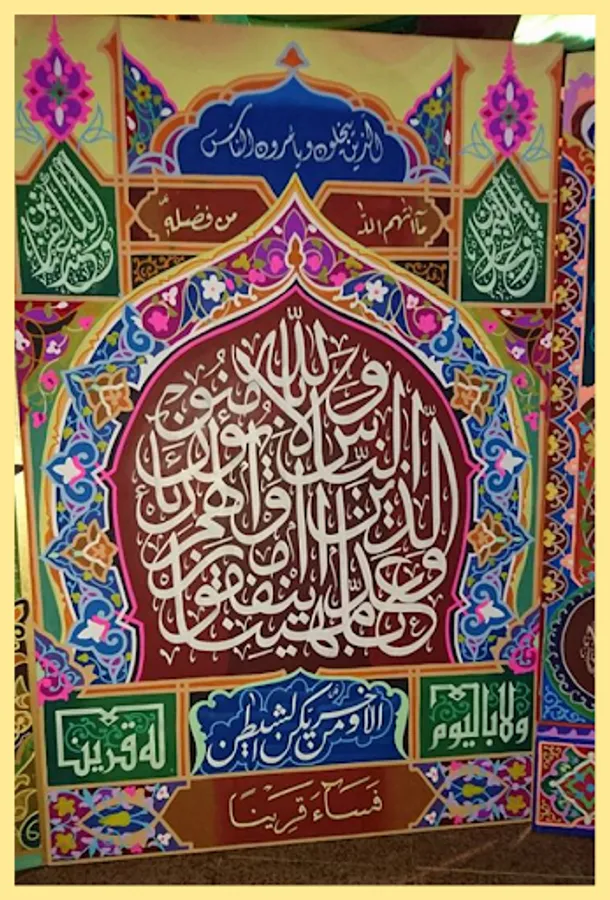 الذين يبخلون ويأمرون الناس
ما اتٰهم الله من فضله
عذابا مهينا والذين ينفقون اموالهم رئاء الناس ولا يؤمنون بالله
ولا باليوم الاخر ومن يكن الشيطن له قرينا
فَسَآءَ قَرِينًا